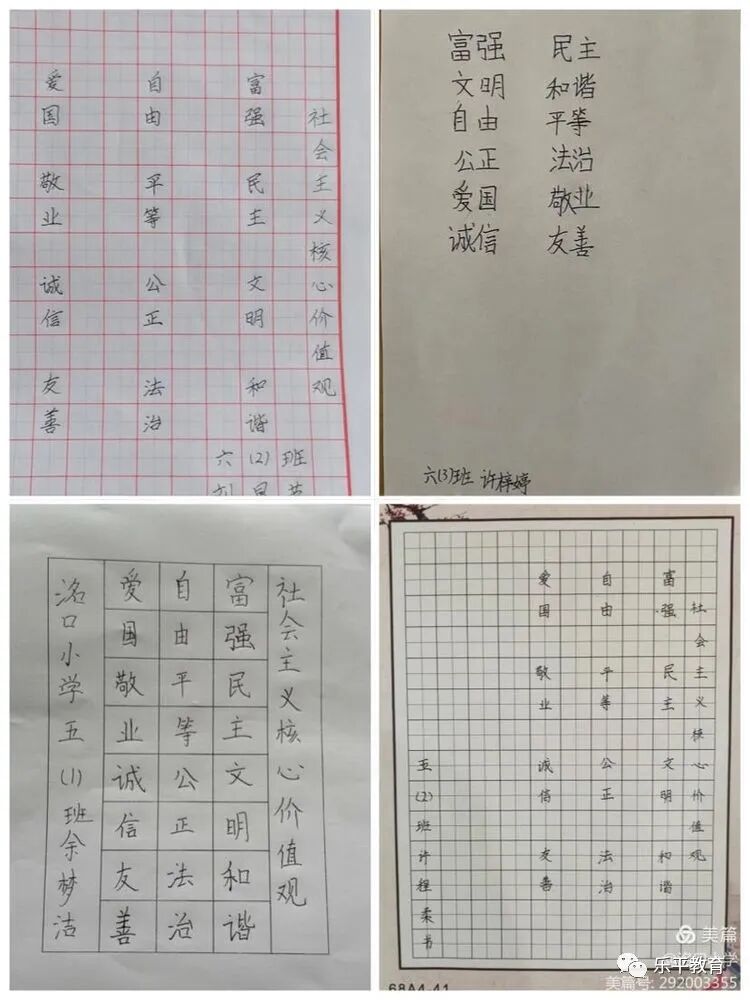 社会主义核心价值观
富强 民主 文明 和谐
自由 平等 公正 法治
爱国 敬业 诚信 友善
六(2)班
富强 民主
文明 和谐
自由 平等
公正 法治
爱国 敬业
诚信 友善
六(3)班 许梓婷
社会主义核心价值观
富强民主文明和谐
自由平等公正法治
爱国敬业诚信友善
洺口小学五(1)班余梦洁
社会主义核心价值观
富强 民主 文明 和谐
自由 平等 公正 法治
爱国 敬业 诚信 友善
五(2)班许程柔书
68A4-41
美篇
乐平教育
美篇号: 292003355